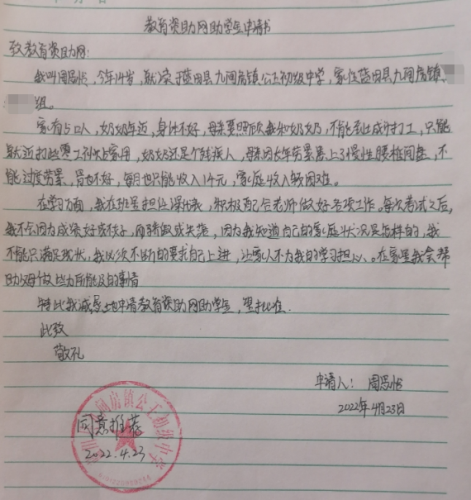 教育资助网助学生申请书
致教育资助网:
我叫周思悦, 今年14岁, 就读于蓝田县九间房镇公王初级中学, 家住蓝田县九间房镇
组。
家有5口人, 奶奶年近, 身体不好, 母亲要照顾我和奶奶, 不能到出成打工, 只能
就近打些零工补贴家用, 奶奶还是个残疾人, 母亲因长年劳累患上了慢性腰椎间盘, 不
能过度劳累, 身也不好, 每月也只能收入1千元, 家庭收入较困难。
在学习方面, 我在班里担任课代表, 积极配合老师做好各项工作。每次考试之后,
我不会因为成绩好或不好, 而骄傲或失落, 因为我知道自己的家庭状况是怎样的, 我
不能只满足现状, 我必须不断的要求自己上进, 让家人不为我的学习担心。在家里我会帮
助母做些力所能及的事情
特此我诚恳地申请教育资助网助学生, 望批准.
此致
敬礼
申请人: 周思悦
2022年4月23日
同意推荐
2022.4.23
房镇公王初级中学